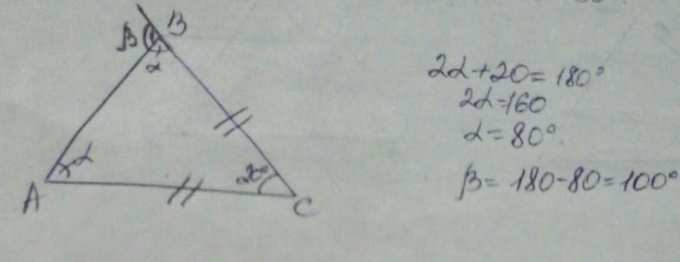 β B
α
α 20°
A C
2α+20=180°
2α=160
α=80°.
β=180-80=100°